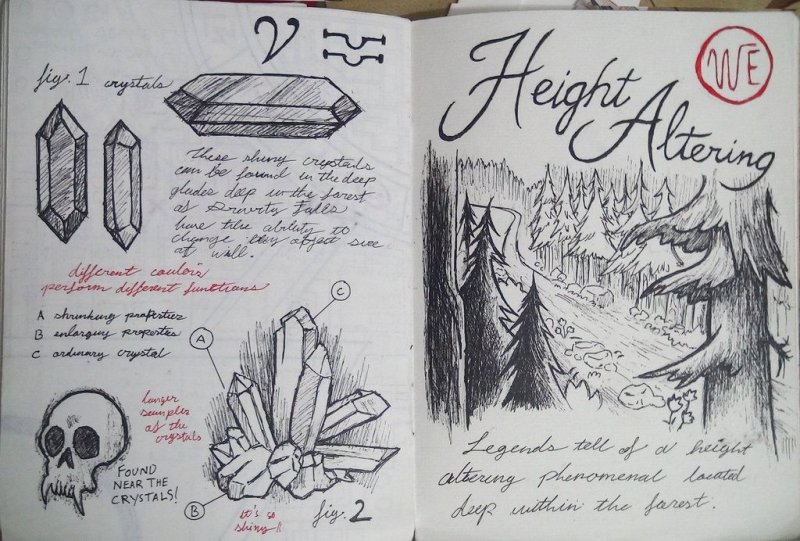 fig. 1 crystals
These shiny crystals
can be found in the deep
glades deep in the forest
of Gravity Falls
have the ability to
change they affect size
at will.
different coulors
perform different functions
A shrinking properties
B enlarging properties
C ordinary crystal
C
A
B
larger
samples
of the
crystals
FOUND
NEAR THE
CRYSTALS!
it's so
shiny!
fig. 2
WE
Height
Altering
Legends tell of a height
altering phenomenal located
deep within the forest.